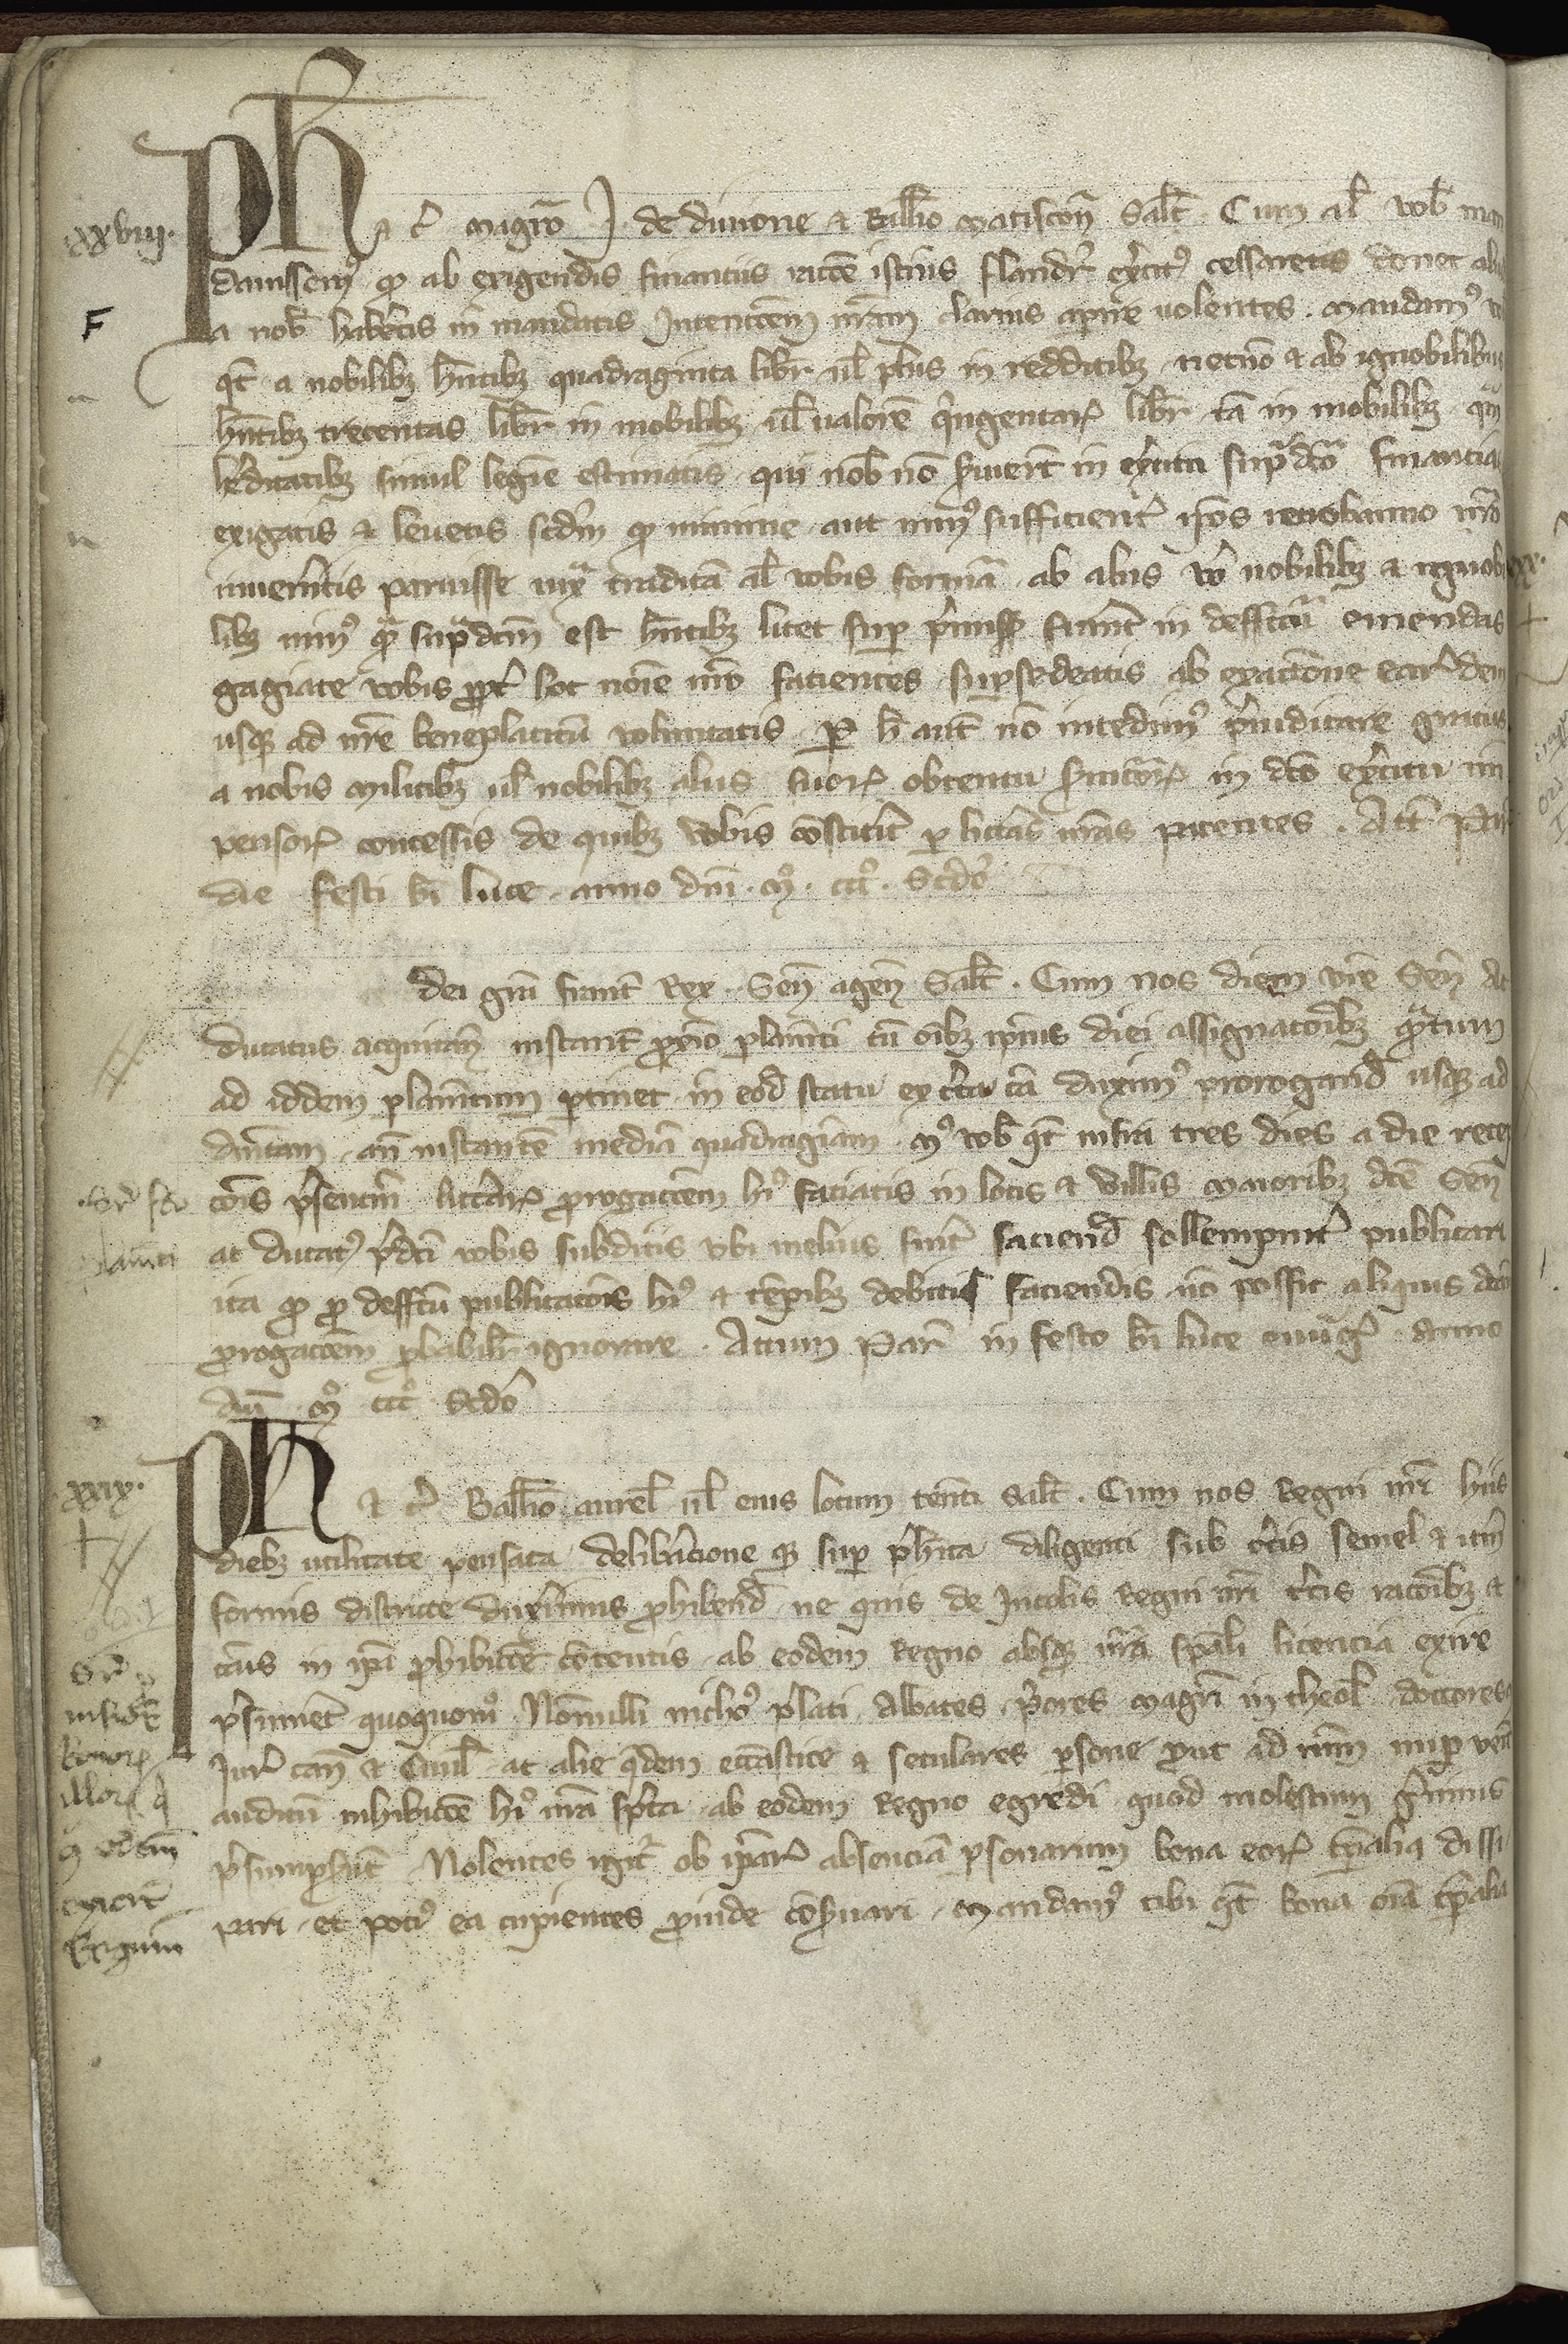 xxviij.
Ph
& c̄ magr̄o J. de divione & Ball̄io Matiscoñ Salt̄. Cum al̄ vob̄ man
davissem⁹ qd̄ ab exigendis financiis rac̄oe istius Flandr̄ ex̄cit⁹ cessaretis donec aliud
F
a nob̄ haber̄etis in mandatis Intenc̄oem nr̄am clarius apire volentes. Mandam⁹ vo
qt̄ a nobilib⁊ hn̄tib⁊ quadraginta libr̄ ul̄ plus in redditib⁊ necn̄o & ab ignobilibus
hn̄tib⁊ trecentas libr̄ in mobilib⁊ ul̄ valorē q̄ngentar̄ libr̄ tā in mobilib⁊ qm̄
hēditatib⁊ simul legit̄ie estimatis qui nob̄ nō s̄vierūt in ex̄citu sup̄dc̄o financias
exigatis & levetis scdm̄ qd̄ minime aut min⁹ sufficient̄ ip̄os retrobanno nr̄o
inven̄itis paruisse iux̄ traditā al̄ vobis formā ab aliis vō nobilib⁊ & ignobi
lib⁊ min⁹ q̄ sup̄dcm̄ est hn̄tib⁊ licet sup p̄miss̄ fuerint in deffc̄u emendas
gagiare vobis ppt̄ hoc noīe nr̄o facientes supsedeatis ab exactione ear̄dem
usq⁊ ad nr̄e beneplacitū voluntatis. P h̄ aut̄ nō intēdim⁹ p̄iudicare graciis
a nobis militib⁊ ul̄ nobilib⁊ aliis suor̄ obtentu s̄vicior̄ in dc̄o ex̄citu im
pensor̄ concessis de quib⁊ vobis cōstitit̄ p litt̄as nr̄as patentes. Act̄ Par̄
die festi bī Luce anno dn̄i. M⁰. ccc⁰. Scdō
dei grā Franc̄ Rex. Señ ageñ Salt̄. Cum nos diem vr̄e Señ Ac
ducatus acquitañ instant̄ px̄io plam̄ti cū oīb⁊ ip̄ius diei assignatoīb⁊ q̄ntum
ad iddem plam̄tum ptinet in eod̄ statu ex c̄ta cā duxim⁹ prorogand̄ usq⁊ ad
qn̄dam an̄ instantē mediā quadragm̄am M⁹ vob̄ qt̄ infra tres dies a die recep
cōis p̄sencm̄ litt̄ar̄ progac̄oem h⁹ faciatis in locis & villis maioribus dc̄e Señ
ac ducat⁹ p̄dc̄i vobis subditis ubi melius fuit̄ faciend̄ sollempnit̄ publicari
plam̄ti
ita qd̄ p deffc̄u publicacōis h⁹ & tempib⁊ debitis faciendis nō possit aliquis dc̄am
progac̄oem pbabilit̄ ignorare. Actum Par̄ in festo bī Luce euūḡ anno
dn̄i. M⁰ ccc⁰ Scdō
xxix.
Ph
& c̄ Ball̄io aurel̄ ul̄ eius locum ten̄ti salt̄. Cum nos Regni nr̄i hiis
dieb⁊ utilitate pensata delib̄acione q⁊ sup p̄h̄ita diligenti sub c̄tis semel & it̄m
formis districte duxerimus phibend̄ ne quis de Incolis Regni nr̄i c̄tis rac̄oib⁊ &
cāis in ip̄a phibic̄oe cōtentis ab eodem Regno absq⁊ nr̄a sp̄ali licencia exire
p̄sumet̄ quoquom⁰. Nōnulli nich⁰ p̄lati Abbates p̄ores magr̄i in theol̄ doctores
Jur̄ cañ & Civil̄ ac alie q̄dem ecc̄astice & seculares psone put ad nr̄m nup venit
auditū inhibic̄oe h⁹ nr̄a sp̄ta ab eodem Regno egredi quod molestum ḡimus
p̄sumpserūt Nolentes igit̄ ob ip̄ar̄ absenciā psonarum bona eor̄ tp̄alia dissi
pari et poci⁹ ea cupientes pinde cōs̄vari Mandam⁹ tibi qt̄ bona oīa tp̄alia
Sr̄
bonor̄
illor̄ q
exier̄t
Regnum